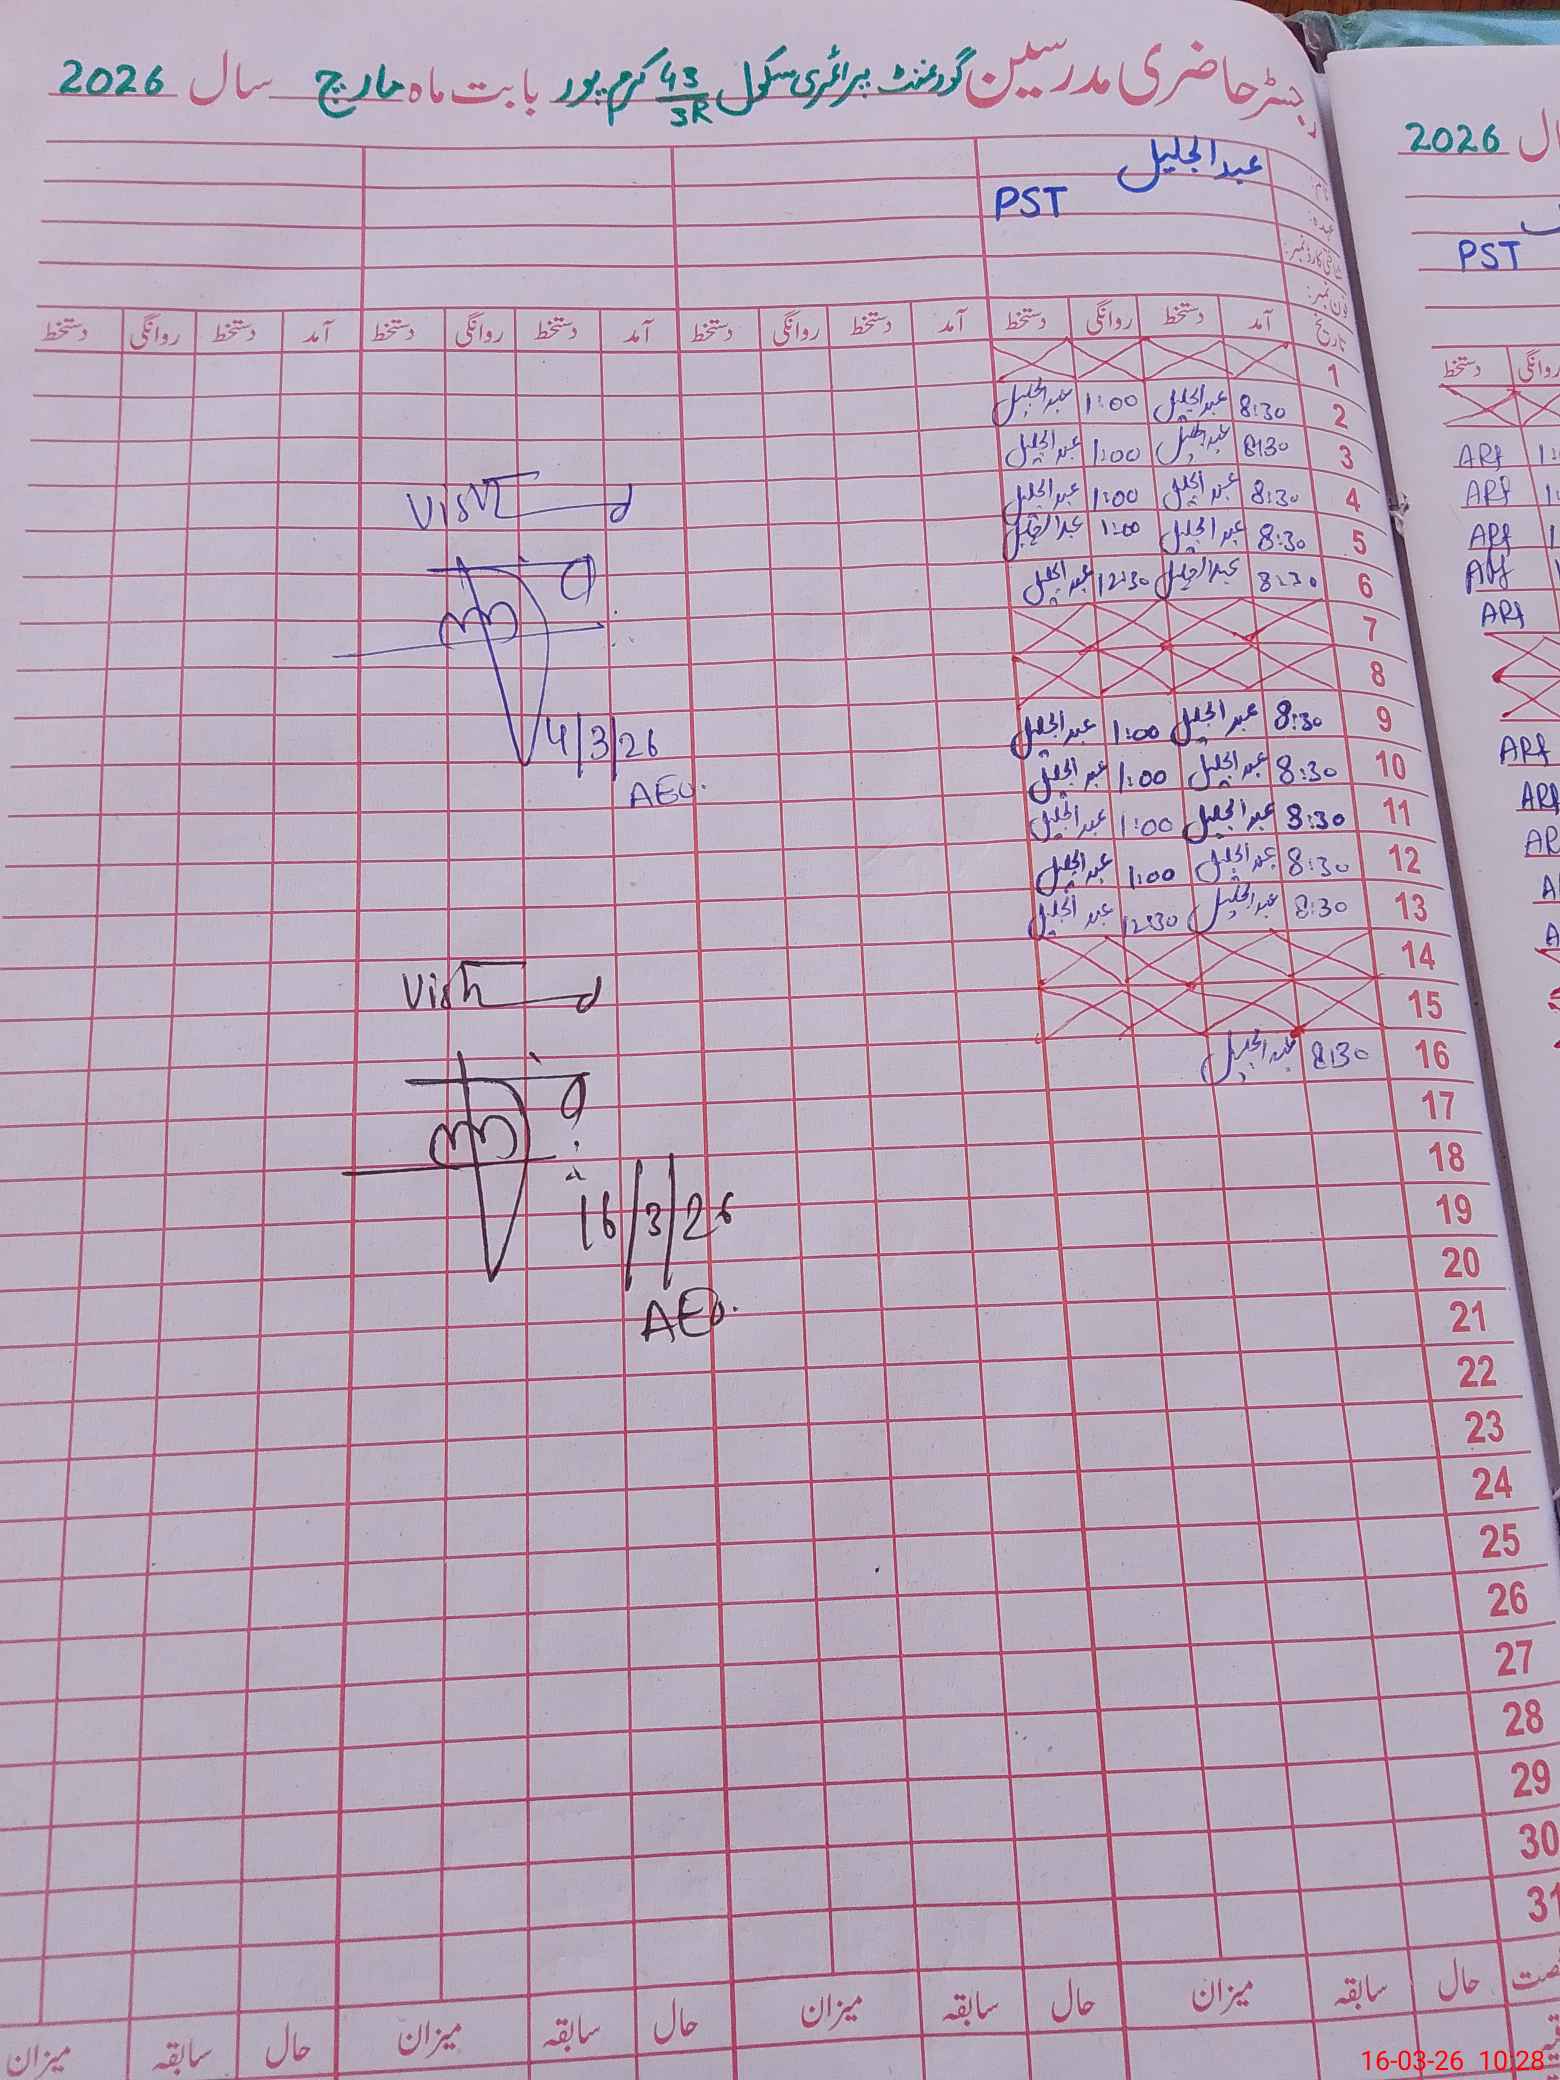 رجسٹر حاضری مدرسین گورنمنٹ پرائمری سکول 43/3R کرم پور بابت ماہ مارچ سال 2026
نام: عبدالجلیل
عہدہ: PST
شناختی کارڈ نمبر:
فون نمبر:
تاریخ آمد دستخط روانگی دستخط آمد دستخط روانگی دستخط آمد دستخط روانگی دستخط آمد دستخط روانگی دستخط
1
2 8:30 عبدالجلیل 1:00 عبدالجلیل
3 8:30 عبدالجلیل 1:00 عبدالجلیل
4 8:30 عبدالجلیل 1:00 عبدالجلیل
5 8:30 عبدالجلیل 1:00 عبدالجلیل
6 8:30 عبدالجلیل 12:30 عبدالجلیل
7
8
9 8:30 عبدالجلیل 1:00 عبدالجلیل
10 8:30 عبدالجلیل 1:00 عبدالجلیل
11 8:30 عبدالجلیل 1:00 عبدالجلیل
12 8:30 عبدالجلیل 1:00 عبدالجلیل
13 8:30 عبدالجلیل 12:30 عبدالجلیل
14
15
16 8:30 عبدالجلیل
17
18
19
20
21
22
23
24
25
26
27
28
29
30
31
حال سابقہ میزان حال سابقہ میزان حال سابقہ میزان حال سابقہ میزان
4/3/26
AEO.
16/3/26
AEO.
2026
PST
روانگی دستخط
ARf
ARf
ARf
ARf
ARf
ARf
16-03-26 10:28